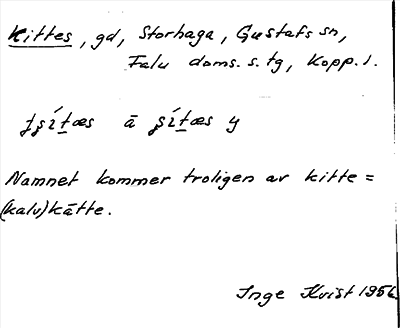 Kittes, gd, Storhaga, Gustafs sn,
Falu doms. s. tg, Kopp. l.
ā
Namnet kommer troligen av kitte =
(kalv)kätte.
Inge Kvist